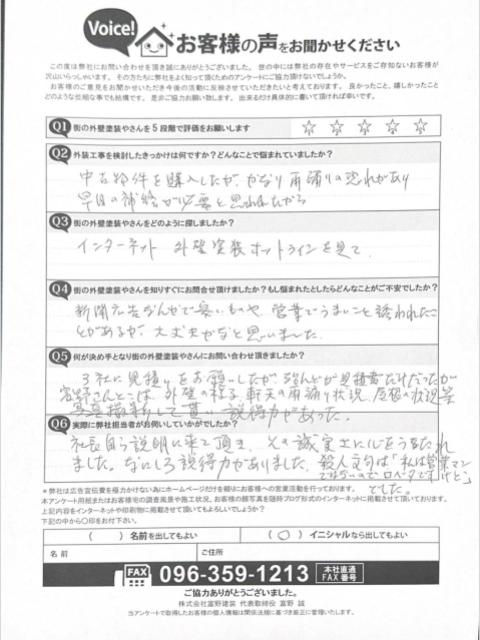 Voice!
お客様の声をお聞かせください
この度は弊社にお問い合わせを頂き誠にありがとうございました。世の中には弊社の存在やサービスをご存知ないお客様が
沢山いらっしゃいます。その方たちに弊社をよく知って頂くためのアンケートにご協力頂けないでしょうか。
お客様のご意見をお聞かせいただき今後の活動に反映させていただきたいと考えております。良かったこと、嬉しかったこと
どのような些細な事でも結構です。是非ご協力お願い致します。出来るだけ具体的に書いて頂ければ幸いです。
Q1 街の外壁塗装やさんを5段階で評価をお願いします ☆ ☆ ☆ ☆ ☆
Q2 外装工事を検討したきっかけは何ですか?どんなことで悩まれていましたか?
中古物件を購入したが、かなり雨漏りの恐れがあり
早目の補修が必要と思われたから
Q3 街の外壁塗装やさんをどのように探しましたか?
インターネット 外壁塗装ホットラインを見て.
Q4 街の外壁塗装やさんを知りすぐにお問合せ頂けましたか?もし悩まれたとしたらどんなことがご不安でしたか?
新聞広告なんかで安いものや、営業でうまいこと誘われたこ
とがあるが 大丈夫かなと思いました.
Q5 何が決め手となり街の外壁塗装やさんにお問い合わせ頂きましたか?
3社に見積りをお願いしたが、殆んどが見積書だけだったが
富野さんとこは、外壁の様子、軒天の雨漏り状況、屋根の状況等
写真撮影して貰い 説得力があった.
Q6 実際に弊社担当者がお伺いしていかがでしたか?
社長自ら説明に来て頂き、その誠実さに心をうたれ
ました。なにしろ説得力がありました. 殺人文句は「私は営業マン
ではないので口ベタですけど」
でした。
*弊社は広告宣伝費を極力かけない為にホームページだけを頼りにお客様への営業活動を行っております。
本アンケート用紙またはお客様宅の調査風景や施工状況、お客様の顔写真を随時ブログ形式のインターネットに掲載させて頂いております。
上記内容をインターネットや印刷物に掲載させて頂いてもよろしいでしょうか?
下記の中から〇印をお付け下さい。
( ) 名前を出してもよい ( 〇 ) イニシャルなら出してもよい
名前 ご住所
FAX 096-359-1213 本社直通 FAX番号
ご協力ありがとうございました。
株式会社富野建装 代表取締役 富野 誠
当アンケートで取得したお客様の個人情報は関係法規に基づき厳正に管理いたします。